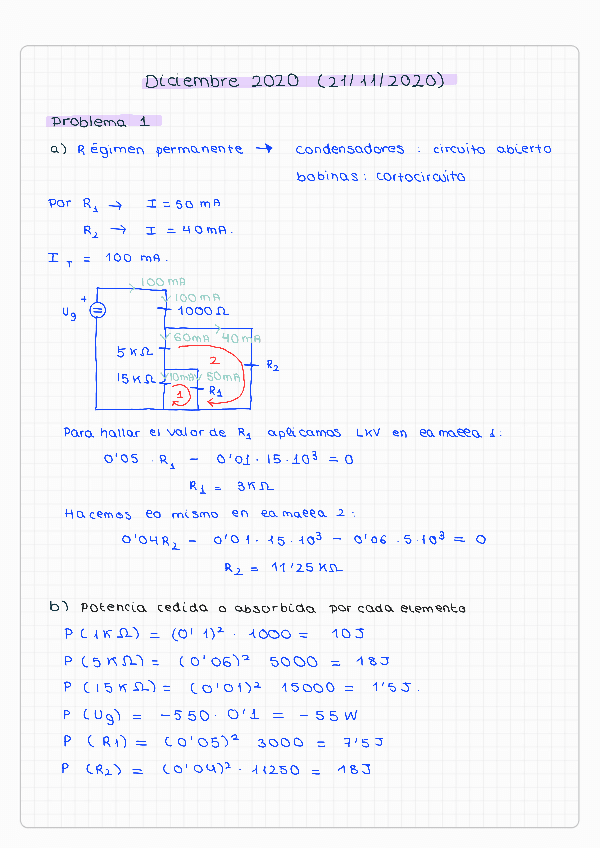 Diciembre 2020 (21/11/2020)
Problema 1
a) Régimen permanente → condensadores : circuito abierto
bobinas : cortocircuito
Por R1 → I = 50 mA
R2 → I = 40 mA.
I T = 100 mA.
100 mA
+ 100 mA
Ug 1000 Ω
60mA 40 mA
5 KΩ 2 R2
15 KΩ 10mA 50mA
1 R1
Para hallar el valor de R1 aplicamos LKV en la malla 1:
0'05 · R1 - 0'01 · 15 · 10³ = 0
R1 = 3KΩ
Hacemos lo mismo en la malla 2 :
0'04R2 - 0'01 · 15 · 10³ - 0'06 · 5 · 10³ = 0
R2 = 11'25 KΩ
b) Potencia cedida o absorbida por cada elemento
P (1KΩ) = (0'1)² · 1000 = 10J
P (5KΩ) = (0'06)² 5000 = 18J
P (15KΩ) = (0'01)² 15000 = 1'5J.
P (Ug) = -550 · 0'1 = -55W
P (R1) = (0'05)² 3000 = 7'5J
P (R2) = (0'04)² · 11250 = 18J